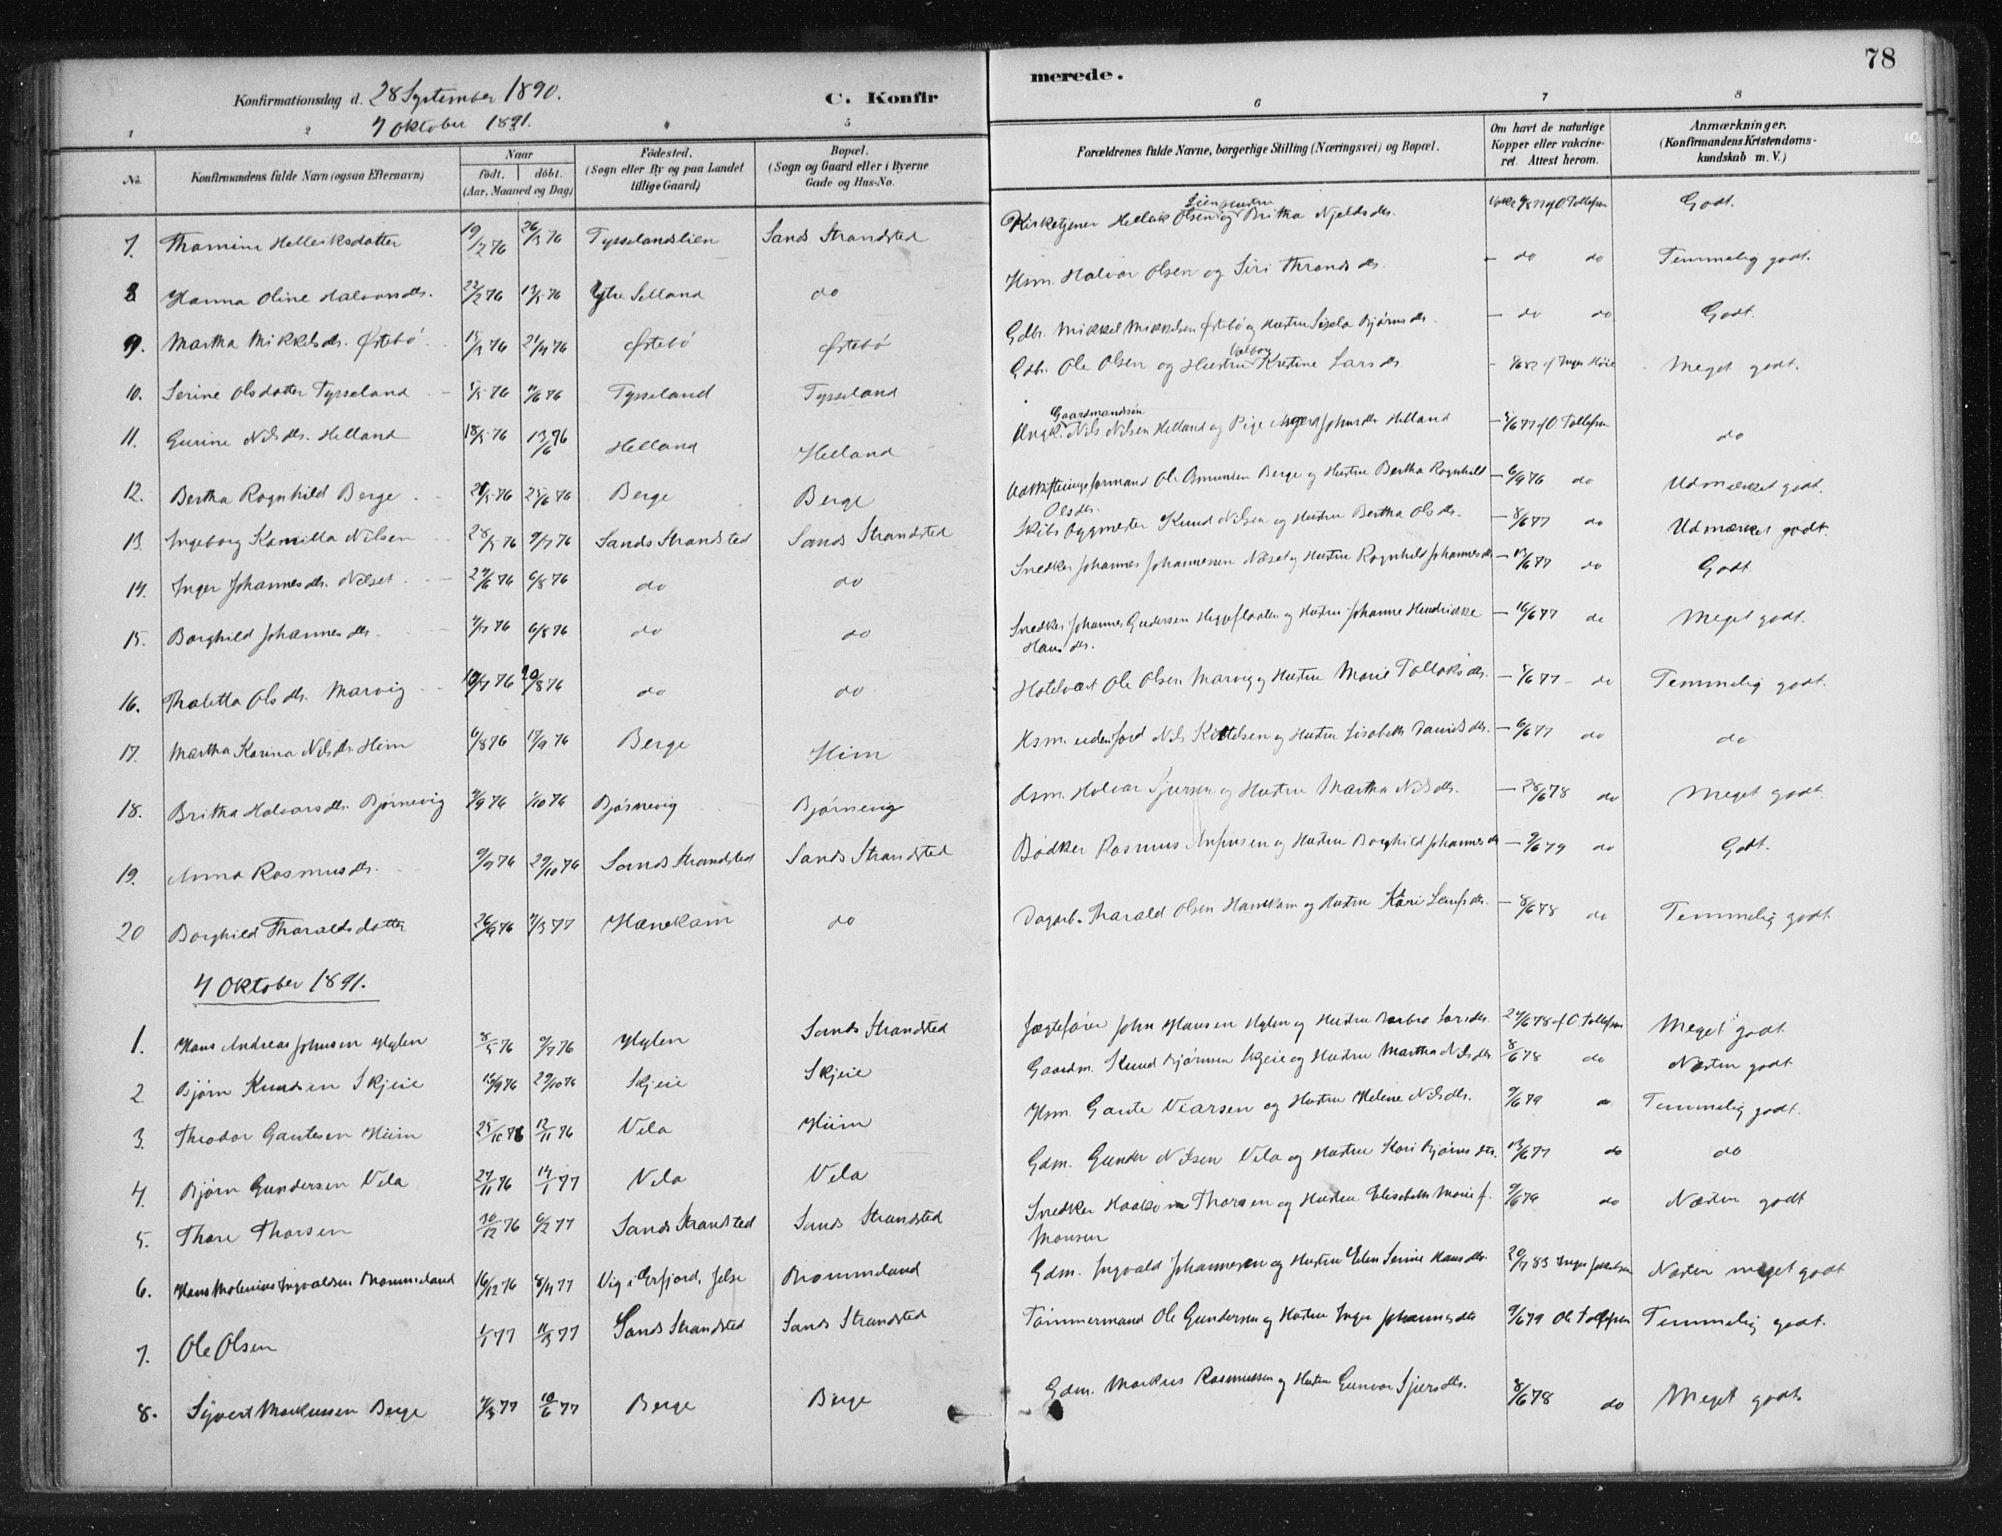 78
Konfirmationsdag d. 28 September 1890.
4 Oktober 1891.
C. Konfir
merede.
1 2 5 6 7 8
No.
Konfirmandens fulde Navn (ogsaa Efternavn)
Naar
födt. döbt.
(Aar, Maaned og Dag)
Födested.
(Sogn eller By og paa Landet
tillige Gaard)
Bopæl.
(Sogn og Gaard eller i Byerne
Gade og Hus-No.
Forældrenes fulde Navne, borgerlige Stilling (Næringsvei) og Bopæl.
Om havt de naturlige
Kopper eller vakcine-
ret. Attest herom.
Anmærkninger.
(Konfirmandens Kristendoms-
kundskab m. V.)
7. Thomine Helleiksdatter 19/2 76 26/3 76 Tysselandslien Sands Strandsted Kirketjener Helleik Olsen Lien og Hustru Britha Njeldsdtr. O. Tollefsen Godt.
8 Hanna Oline Halvorsdtr. 22/2 76 Ytre Selland do Hsm. Halvor Olsen og Siri Throndsdtr. - do do Temmelig godt.
9. Martha Mikkelsdtr. Østebö 21/4 76 Østebö Østebö Gdbr. Mikkel Mikkelsen Østebö og Hustru Sisela Bjørnsdtr. - do do Godt.
10. Serine Olsdatter Tysseland 11/6 76 Tysseland Tysseland Gdbr. Ole Olsen og Hustru Valborg Kristine Larsdtr. Meget godt.
11. Gurine Nilsdtr. Helland 18/5 76 13/6 76 Helland Helland Ungk. Gaardmandssön Nils Nilsen Helland og Pige Johnsdtr Helland 77 O. Tollefsen do
12. Bertha Rognhild Berge 21/5 76 25/6 76 Berge Berge Udskiftningsformand Ole Asmundsen Berge og Hustru Bertha Rognhild
Olsdtr. - 6/9 76 do Udmærket godt.
13. Ingeborg Kamilla Nilsen 28/5 76 9/7 76 Sands Strandsted Sands Strandsted Skibsbygmester Knud Nilsen og Hustru Bertha Olsdtr. - 8/6 77 do Udmærket godt.
14. Inger Johannesdtr. Næset 24/6 76 6/8 76 do do Snedker Johannes Johannessen Næset og Hustru Rognhild Johannesdtr - 13/6 77 do Godt.
15. Borghild Johannesdtr. 6/8 76 do do Snedker Johannes Gundersen Heggeflaaten og Hustru Johanne Hendrikke
Hansdtr. - 16/6 77 do Meget godt.
16. Thaletta Olsdtr. Marvig 20/8 76 do do Hotelvært Ole Olsen Marvig og Hustru Marie Tollaksdtr. - 5/6 77 - do Temmelig godt.
17. Martha Karina Nilsdtr. Hiim 6/8 76 17/9 76 Berge Hiim Hsm. uden Jord Nils Kittelsen og Hustru Lisabeth Lauritsdtr. - 6/6 77 do do
18. Britha Halvorsdtr. Bjørnevig 1/10 76 Bjørnevig Bjørnevig Hsm. Halvor Sjursen og Hustru Martha Nilsdtr. - 28/6 78 do Meget godt.
19. Anna Rasmusdtr. 9/9 76 29/10 76 Sands Strandsted Sands Strandsted Bødker Rasmus Anfinsen og Hustru Borghild Johannesdtr - 9/6 79 do Godt.
20 Borghild Tharaldsdatter 26/9 76 4/3 77 Hanekam do Dagarb. Tharald Olsen Hanekam og Hustru Kari Leufsdtr. - 8/6 78 do Temmelig godt
4 Oktober 1891.
1. Hans Andreas Johnsen Hylen 8/5 76 9/7 76 Hylen Sands Strandsted Jægtefører John Hansen Hylen og Hustru Barbro Larsdtr. 24/6 78 af O. Tollefsen Meget godt
2. Bjørn Knudsen Skjeie 16/9 76 29/10 76 Skjeie Skjeie Gaardm. Knud Bjørnsen Skjeie og Hustru Martha Nilsdtr. 8/6 78 do Næsten godt
3. Theodor Gautesen Hiim 25/10 76 12/11 76 Vela Hiim Hsm. Gaute Vearsen og Hustru Helene Nilsdtr. 9/6 79 do Temmelig godt.
4. Bjørn Gundersen Vela 27/11 76 14/1 77 Vela Vela Gdm. Gunder Nilsen Vela og Hustru Kari Bjørnsdtr. 13/6 77 do do
5. Thore Thorsen 30/12 76 6/2 77 Sands Strandsted Sands Strandsted Snedker Haakon Thorsen og Hustru Elisabeth Marie f.
Monsen 9/6 79 do Næsten godt
6. Hans Molenius Ingvaldsen Brommeland 16/12 76 8/4 77 Vig i Erfjord, Jelse Brommeland Gdm. Ingvald Johannesen og Hustru Elen Serine Hansdtr. 20/7 83 Næsten meget godt
7. Ole Olsen 1/1 77 11/3 77 Sands Strandsted Sands Strandsted Tömmermand Ole Gundersen og Hustru Inger Johannesdtr 9/6 79 Ole Tollefsen Temmelig godt.
8. Sjvert Markussen Berge 4/3 77 10/6 77 Berge Berge Gdm. Markus Rasmussen og Hustru Gunvor Sjursdtr. 8/6 78 do Meget godt.